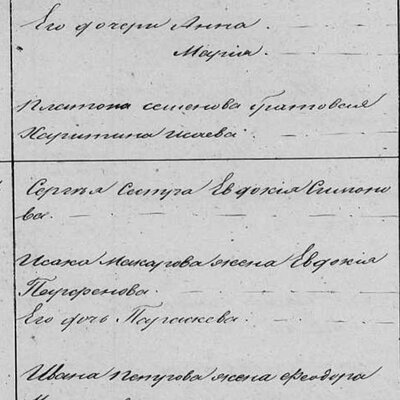 Его дочери Анна
Марія
Платона семенова
Харитина Исаева
Сергѣя Сестра Евдокія Симоно
ва
Исака макарова жена Евдокія
Парфенова
Его дочь Параскева
Ивана петрова жена Феодора